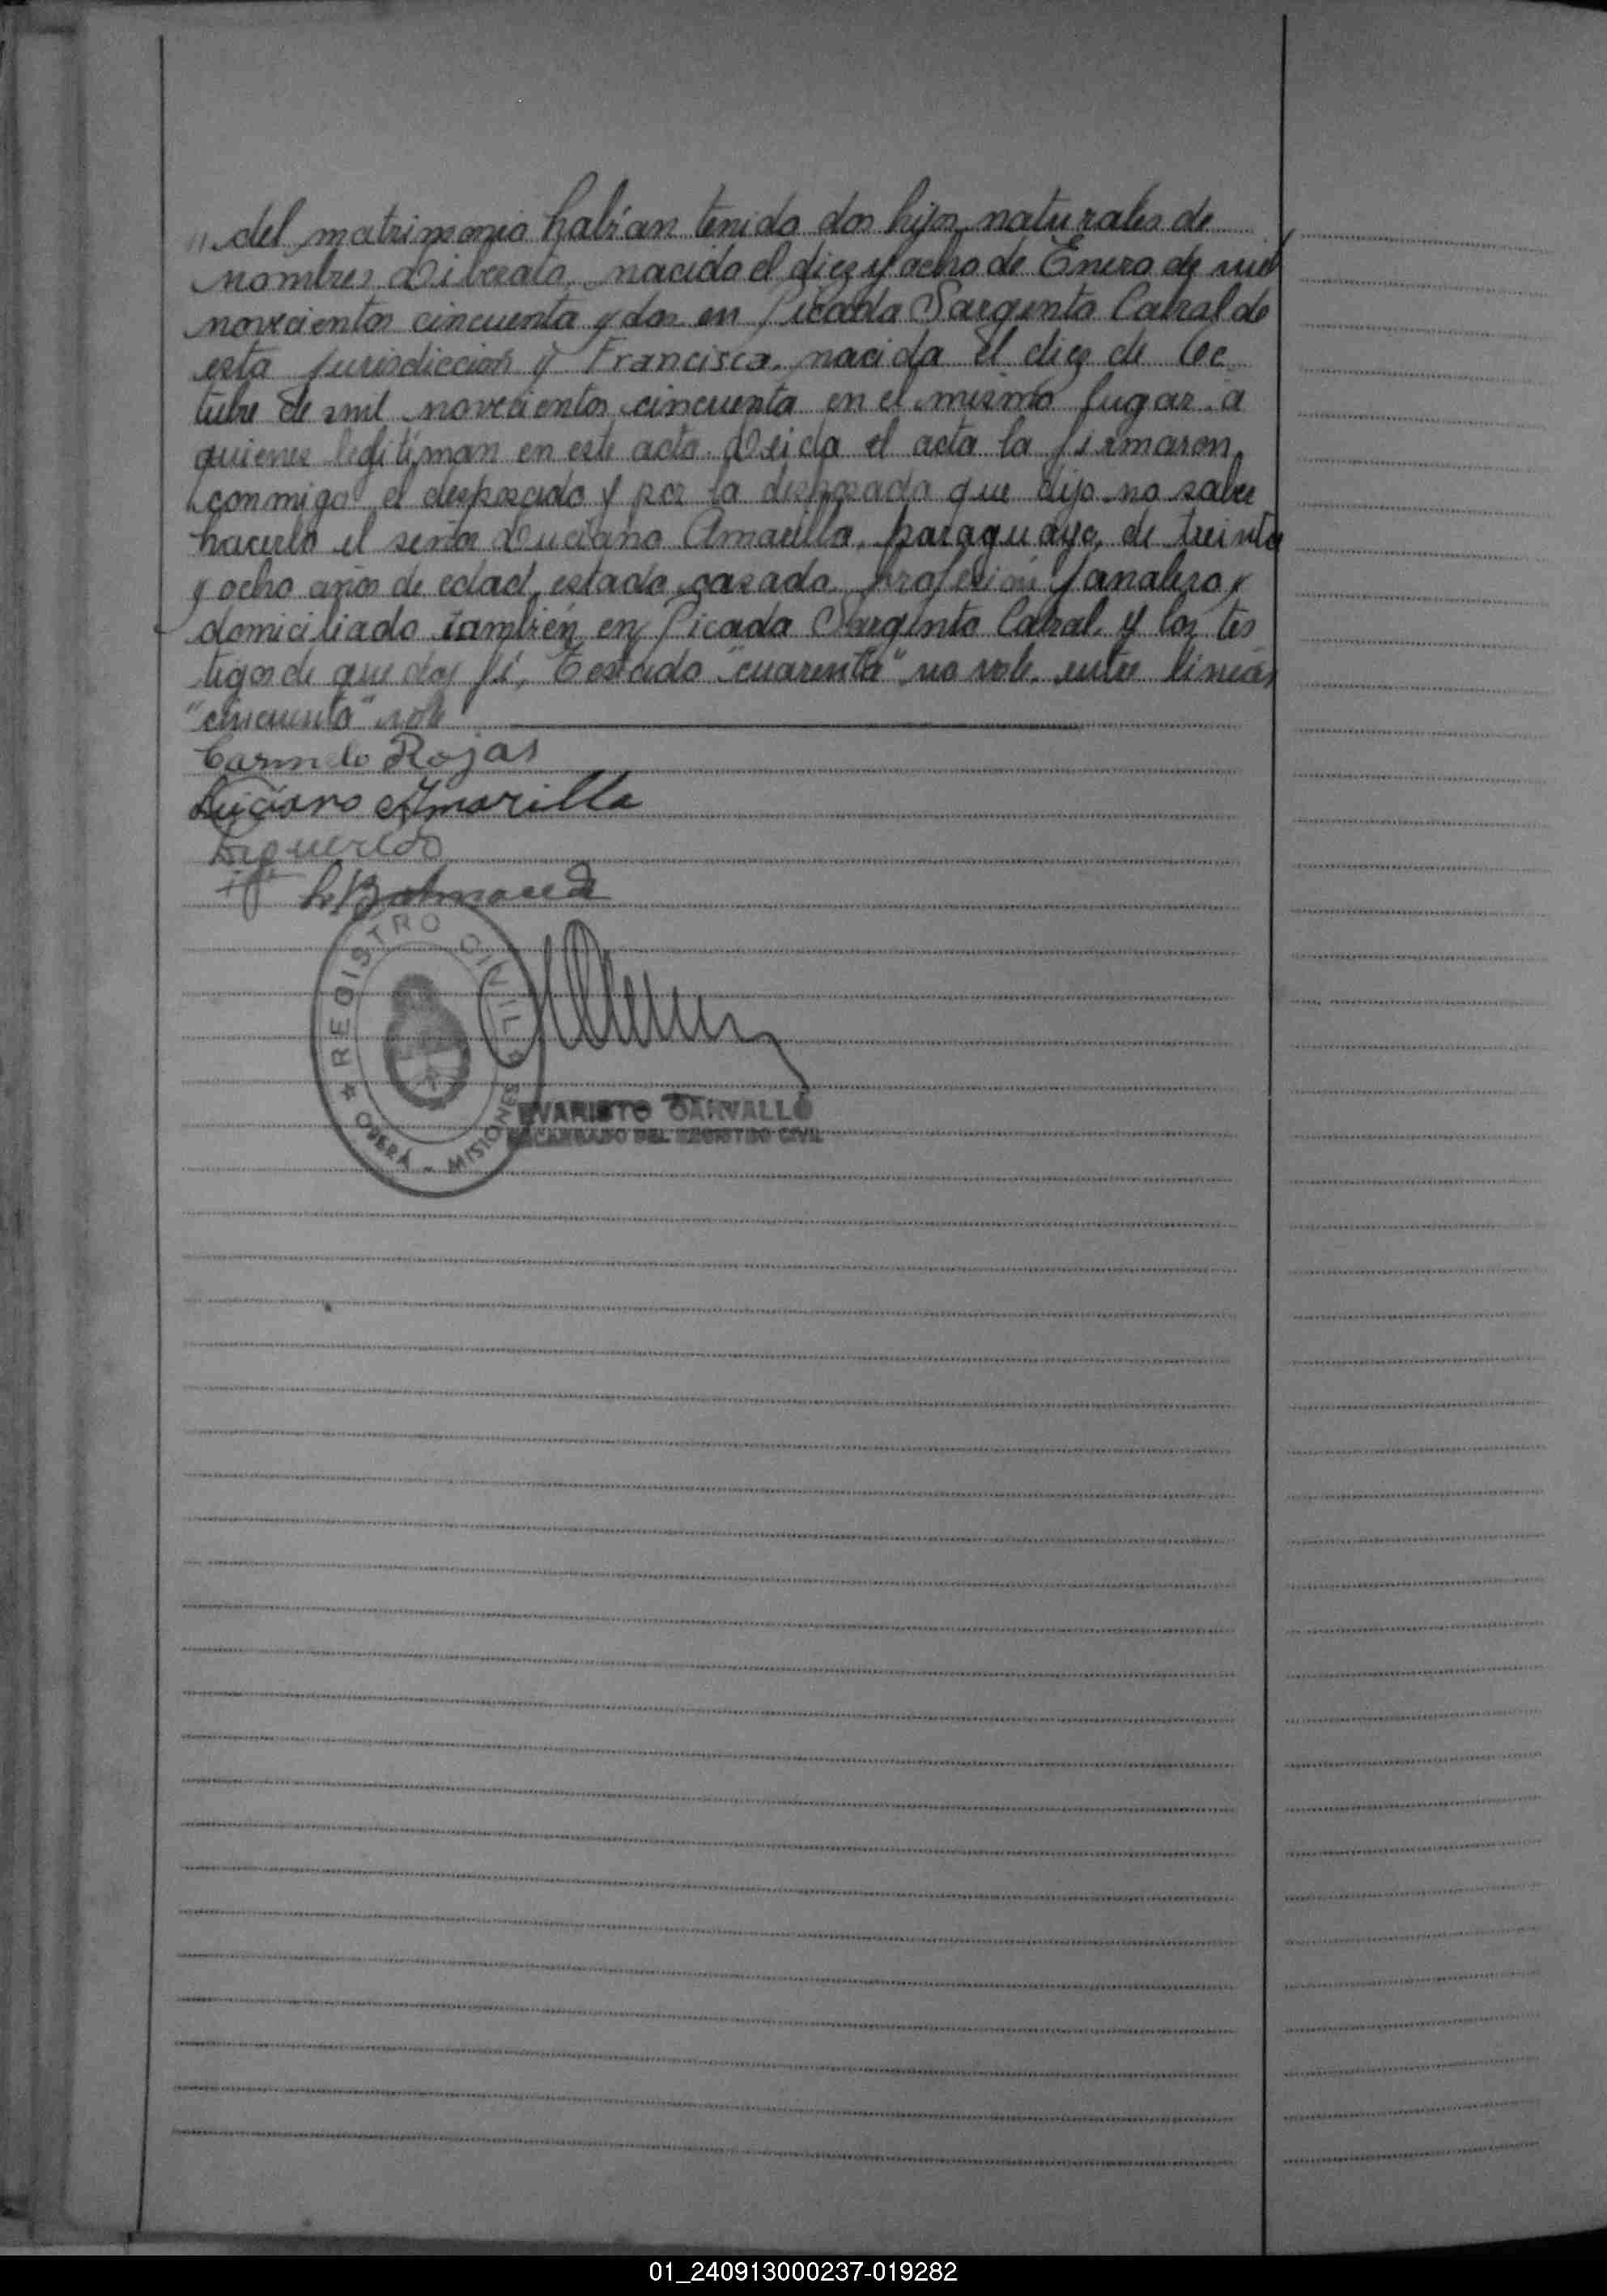 " del matrimonio habían tenido dos hijos naturales de
nombres Liberato, nacido el diez y ocho de Enero de mil
novecientos cincuenta y dos en Picada Sargento Cabral de
esta jurisdiccion y Francisca, nacida el diez de Oc
tubre de mil novecientos cincuenta en el mismo lugar a
quienes legitiman en este acto. Leida el acta la firmaron
conmigo el desposado y por la desposada que dijo no saber
hacerlo el señor Luciano Amarilla, paraguayo, de treinta
y ocho años de edad, estado casado, profesión Jornalero y
domiciliado también en Picada Sargento Cabral, y los tes
tigos de que doy fé. Testado "cuarenta" no vale. entre lineas
"cincuenta" vale
Carmelo Rojas
Luciano Amarilla
Figueredo
REGISTRO CIVIL
OBERÁ - MISIONES
EVARISTO CARVALLO
ENCARGADO DEL REGISTRO CIVIL
01_240913000237-019282